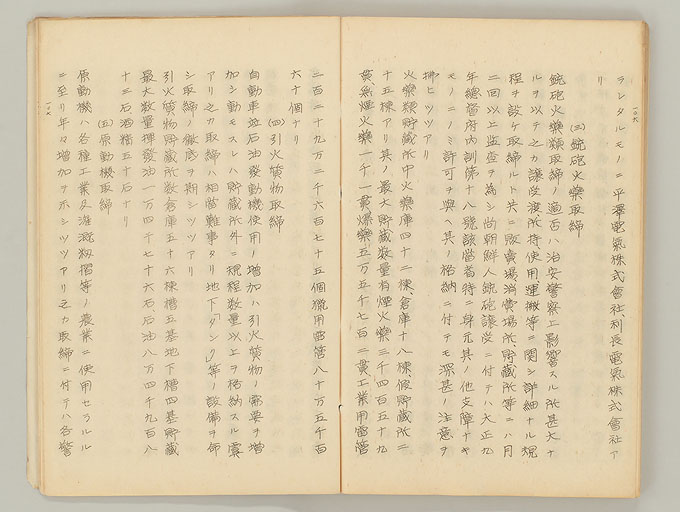 ランタルモノニ平澤電氣株式會社、利長電氣株式會社ア
リ
(三)銃砲火藥取締
銃砲火藥類取締ノ適否ハ治安警察上影響スル所甚大ナ
ルヲ以テ之カ讓受渡所持、使用運搬等ニ関シ詳細ナル規
程ヲ設ケ取締ルト共ニ販賣場消費場所、貯藏所等ニハ月
二回以上監査ヲ為シ尚朝鮮人銃砲讓受ニ付テハ大正九
年總督府内訓第十八號該當者特ニ身元其ノ他支障ナキ
モノニノミ許可ヲ與ヘ其ノ格納ニ付テモ深甚ノ注意ヲ
拂ヒツツアリ
火藥類貯藏所中火藥庫四十二棟、倉庫十八棟假貯藏所二
十五棟アリ其ノ最大貯藏数量有煙火藥三千四百五十九
貫、無煙火藥一千一貫爆藥五万五千七百二貫、工業用雷管
二百二十九万二千六百七十五個獵用雷管八十万五千百
六十個ナリ
(四)引火質物取締
自動車並石油發動機使用ノ増加ハ引火質物ノ需要ヲ増
加シ動モスレハ貯藏所外ニ規程数量以上ヲ格納スル虞
アリ之カ取締ハ相當難事タリ地下「タンク」等ノ設備ヲ命
シ取締ノ徹底ヲ期シツツアリ
引火質物貯藏所数倉庫五十六棟槽五基地下槽四基貯藏
最大数量揮發油一万四千七十六石石油八万四千九百八
十三石酒精五十石ナリ
(五)原動機取締
原動機ハ各種工業及進穀籾摺等ノ農業ニ使用セラルル
ニ至リ年々増加ヲ示シツツアリ之カ取締ニ付テハ各警